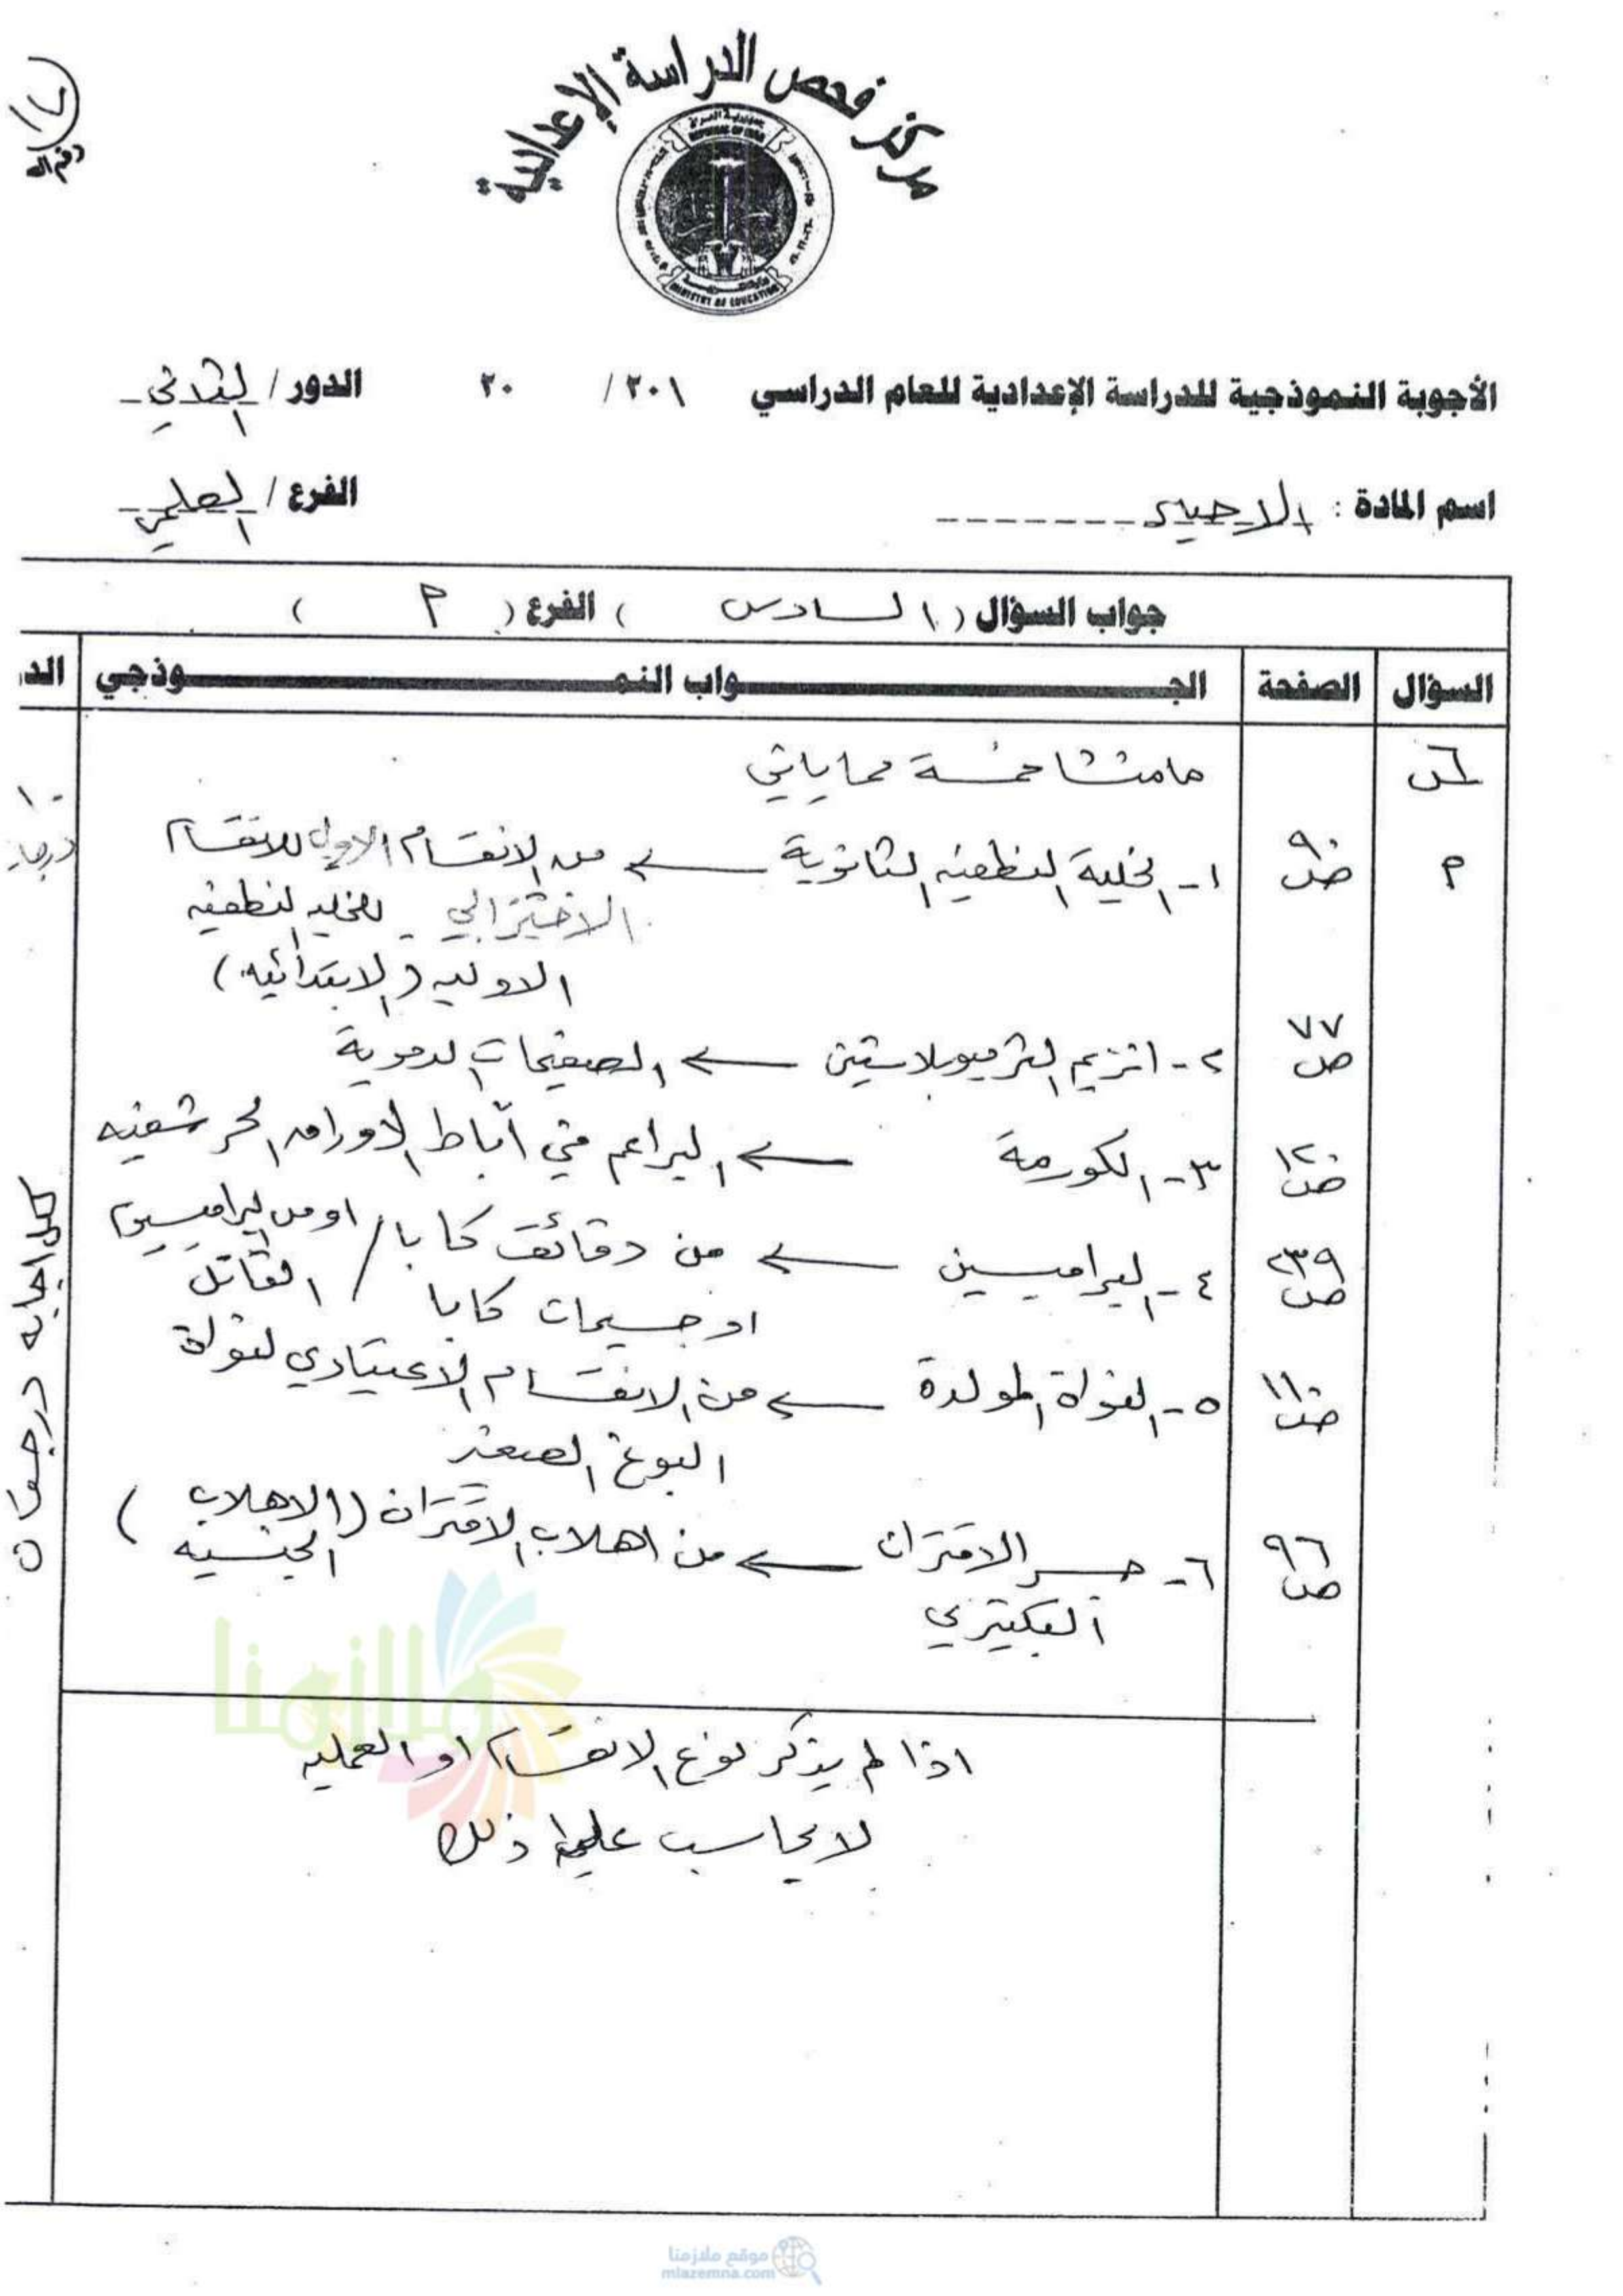 مركز فحص الدراسة الإعدادية
REPUBLIC OF IRAQ
MINISTRY OF EDUCATION
الأجوبة النموذجية للدراسة الإعدادية للعام الدراسي ٢٠١ / ٢٠ الدور / الثاني
اسم المادة : الاحياء الفرع / العلمي
جواب السؤال ( السادس ) الفرع ( م )
السؤال الصفحة الجـــواب النمـــوذجي الد
س٦ ما منشا خمسة مما ياتي
م ص٩٠ ١- الخلية النطفية الثانوية ← من الانقسام الاول للانقسام ١٠
الاختزالي للخلية النطفية
الاولية (الابتدائية)
ص٧٧ ٢- انزيم الثرمبوبلاستين ← الصفيحات الدموية
ص١٢٠ ٣- الكورمة ← البراعم في آباط الاوراق الحرشفية
ص٢٣٩ ٤- البراميسين ← من دقائق كابا / او من البراميسيوم
او جسيمات كابا / القاتل
ص١١٠ ٥- النواة المولدة ← من الانقسام الاعتيادي لنواة
البوغ الصغير
ص٩٦ ٦- جسر الاقتران ← من اهلاب الاقتران (الاهلاب الجنسية)
البكتيري
كل اجابه درجتان
اذا لم يذكر نوع الانقسام او العملية
لا يحاسب على ذلك
ملازمنا
موقع ملازمنا
mlazemna.com